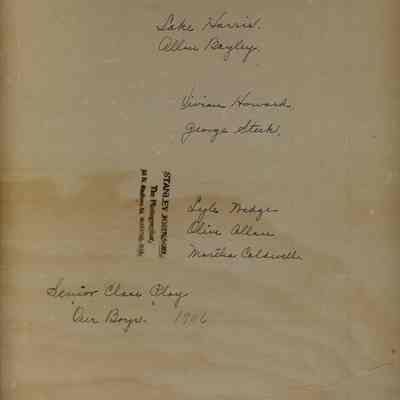 Lake Harris.
Allan Bagley.
Vivian Howard.
George Steek.
STANLEY
The Photographer,
Lyle Wedge
Olive Allan
Martha Caldwell
Senior Class Play
"Our Boys." 1906